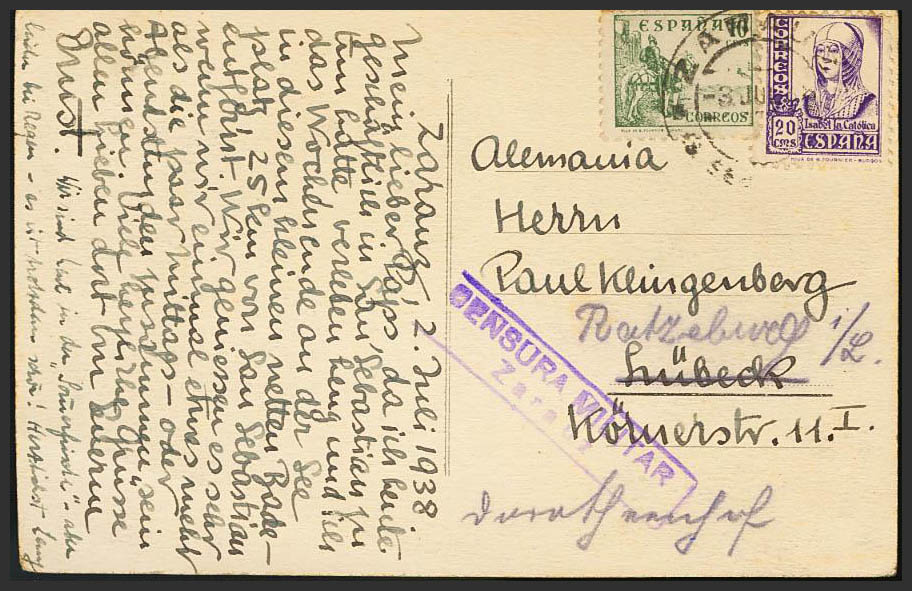 Zarauz, 2. Juli 1938
Mein lieber Paps, da ich heute
geschäftlich in San Sebastian zu
tun hatte verleben Heng und ich
das Wochenende an der See
in diesem kleinen netten Bade-
platz 25 km von San Sebastian
entfernt. Wir geniessen es sehr
wenn wir einmal etwas mehr
als die paar Mittags- oder
Abendstunden zusammen sein
können. Viele herzliche Grüsse
allen Lieben dort von Euerm
Ernst.
Wir sind hier in der "
leider bei Regen - es ist trotzdem schön! Herzlichst
ESPAÑA
10
CORREOS
CORREOS
20
CMS
Isabel la Católica
ESPAÑA
-3 JUL
Alemania
Herrn
Paul Klingenberg
Ratzeburg i/L.
Lübeck
Körnerstr. 11. I.
Dorotheenhof
CENSURA MILITAR
Zarauz